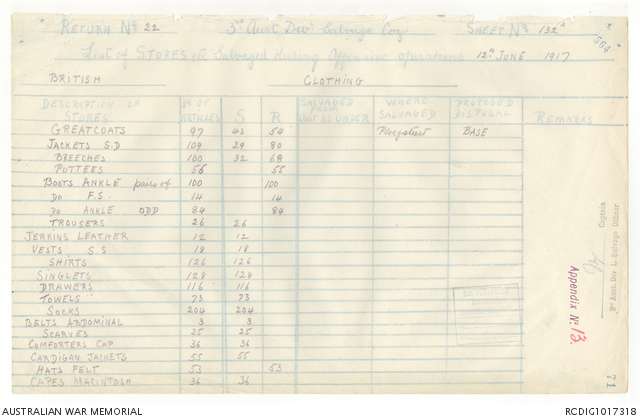 RETURN No 22 3rd Aust Divl Salvage Coy SHEET No 132A
List of STORES etc Salvaged during Offensive operations 12th JUNE 1917
BRITISH CLOTHING
DESCRIPTION OF STORES No OF ARTICLES S R SALVAGED WHERE SALVAGED PROPOSED DISPOSAL REMARKS
GREATCOATS 97 43 54 Ploegsteert BASE
JACKETS S.D 109 29 80
BREECHES 100 32 68
PUTTEES 55 55
BOOTS ANKLE pairs of 100 100
DO F.S. 14 14
DO ANKLE ODD 84 84
TROUSERS 26 26
JERKINS LEATHER 12 12
VESTS S.S 18 18
SHIRTS 126 126
SINGLETS 128 128
DRAWERS 116 116
TOWELS 73 73
SOCKS 204 204
BELTS ABDOMINAL 3 3
SCARVES 25 25
COMFORTERS CAP 36 36
CARDIGAN JACKETS 55 55
HATS FELT 53 53
CAPES MACINTOSH 36 36
Captain
3rd Aust. Div. L. Salvage Officer
Appendix No 13.
71
AUSTRALIAN WAR MEMORIAL RCDIG1017318